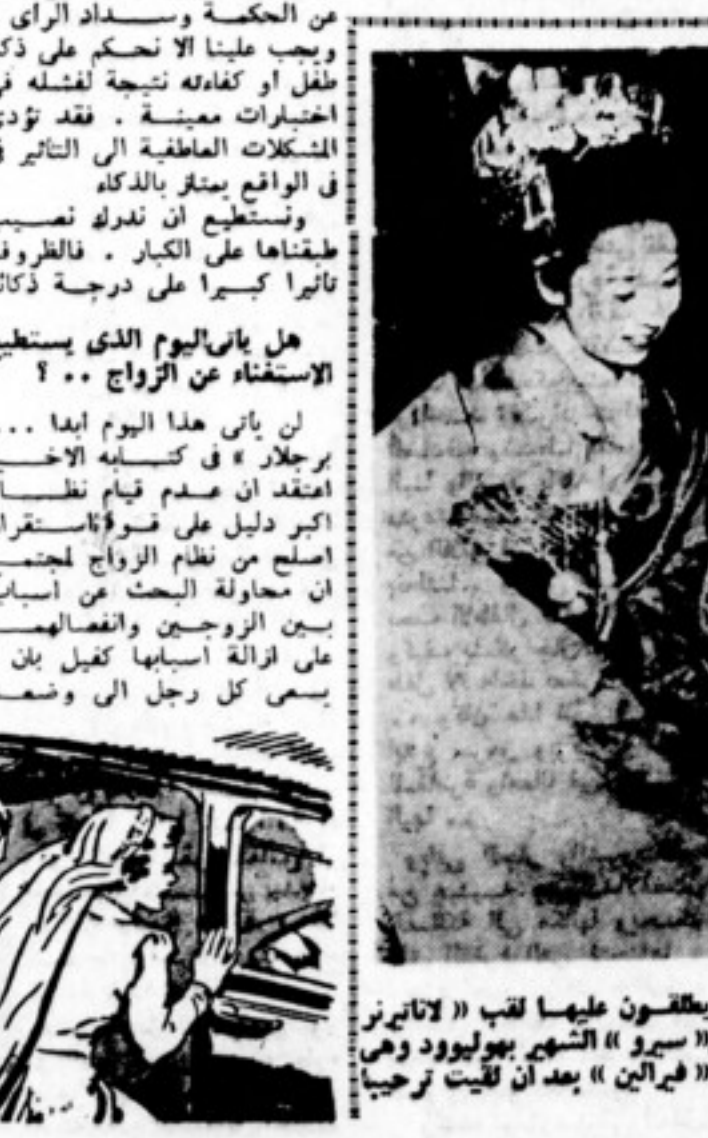 عن الحكمة وسداد الرأى
ويجب علينا الا نحكم على ذكا
طفل أو كفاءته نتيجة لفشله فى
اختبارات معينة . فقد تؤدى
المشكلات العاطفية الى التأثير ف
فى الواقع يمتاز بالذكاء
ونستطيع ان ندرك نصيب
طبقناها على الكبار . فالظروف
تأثيرا كبيرا على درجة ذكائ
هل يأتى اليوم الذى يستطيع
الاستغناء عن الزواج .. ؟
لن يأتى هذا اليوم ابدا ...
برجلار » فى كتابه الاخي
اعتقد ان عدم قيام نظا
اكبر دليل على قوة استقرا
اصلح من نظام الزواج لمجتم
ان محاولة البحث عن اسباب
بين الزوجين وانفصالهم
على ازالة اسبابها كفيل بان
يسعى كل رجل الى وضع
يطلقون عليها لقب « لاناتيرنر
« سيرو » الشهير بهوليوود وهى
« فيرالين » بعد ان لقيت ترحيبا